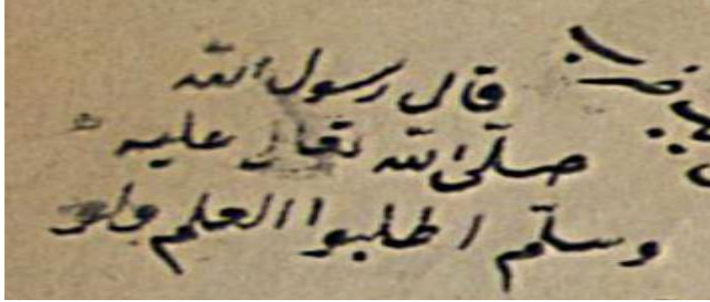 قال رسول الله
صلى الله تعالى عليه
وسلم اطلبوا العلم ولو